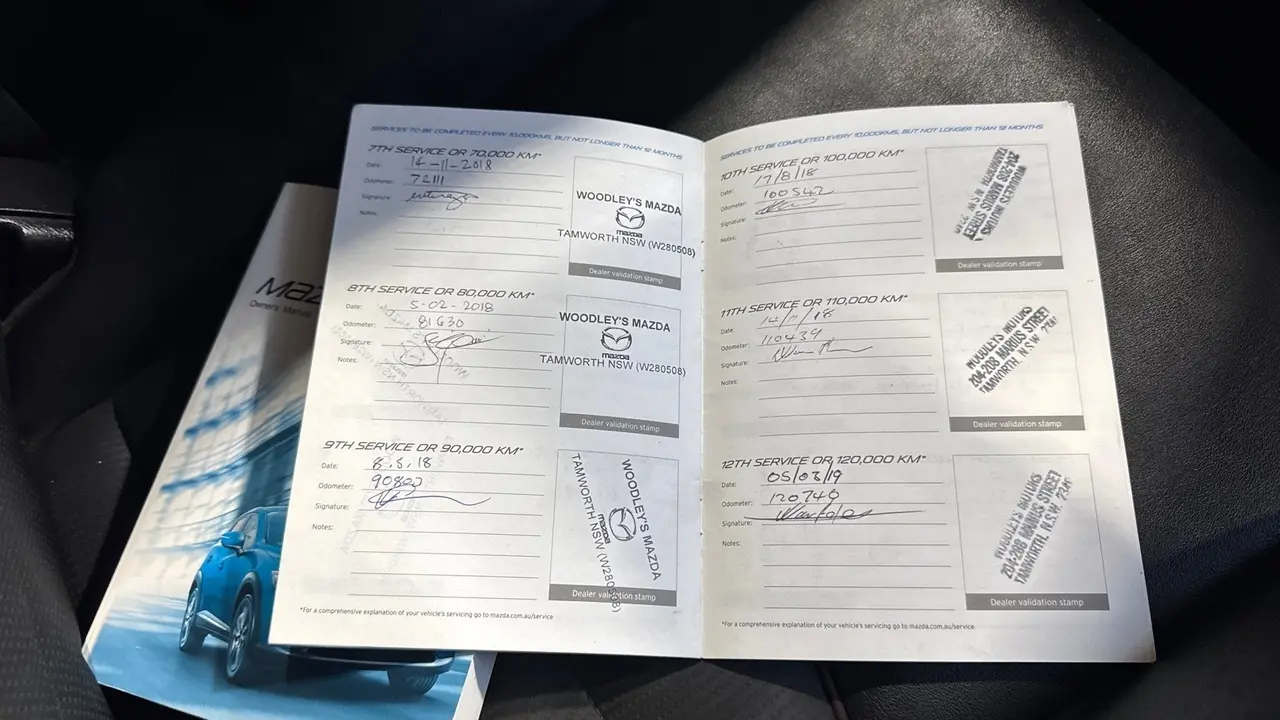 SERVICES TO BE COMPLETED EVERY 10,000KMS, BUT NOT LONGER THAN 12 MONTHS
7TH SERVICE OR 70,000 KM*
Date: 14-11-2018
Odometer: 72111
Signature:
Notes:
WOODLEY'S MAZDA
mazda
TAMWORTH NSW (W280508)
Dealer validation stamp
8TH SERVICE OR 80,000 KM*
Date: 5-02-2018
Odometer: 81630
Signature:
Notes:
WOODLEY'S MAZDA
mazda
TAMWORTH NSW (W280508)
Dealer validation stamp
9TH SERVICE OR 90,000 KM*
Date: 8.5.18
Odometer:
Signature:
Notes:
WOODLEY'S MAZDA
mazda
TAMWORTH NSW (W280508)
Dealer validation stamp
*For a comprehensive explanation of your vehicle's servicing go to mazda.com.au/service
SERVICES TO BE COMPLETED EVERY 10,000KMS, BUT NOT LONGER THAN 12 MONTHS
10TH SERVICE OR 100,000 KM*
Date: 17/8/18
Odometer: 100542
Signature:
Notes:
WOODLEYS MOTORS
204-208 MARIUS STREET
TAMWORTH N.S.W. 2340
Dealer validation stamp
11TH SERVICE OR 110,000 KM*
Date: 14/11/18
Odometer: 110439
Signature:
Notes:
WOODLEYS MOTORS
204-208 MARIUS STREET
TAMWORTH N.S.W. 2340
Dealer validation stamp
12TH SERVICE OR 120,000 KM*
Date: 05/03/19
Odometer: 120740
Signature:
Notes:
WOODLEYS MOTORS
204-208 MARIUS STREET
TAMWORTH N.S.W. 2340
Dealer validation stamp
*For a comprehensive explanation of your vehicle's servicing go to mazda.com.au/service
Owner's Manual